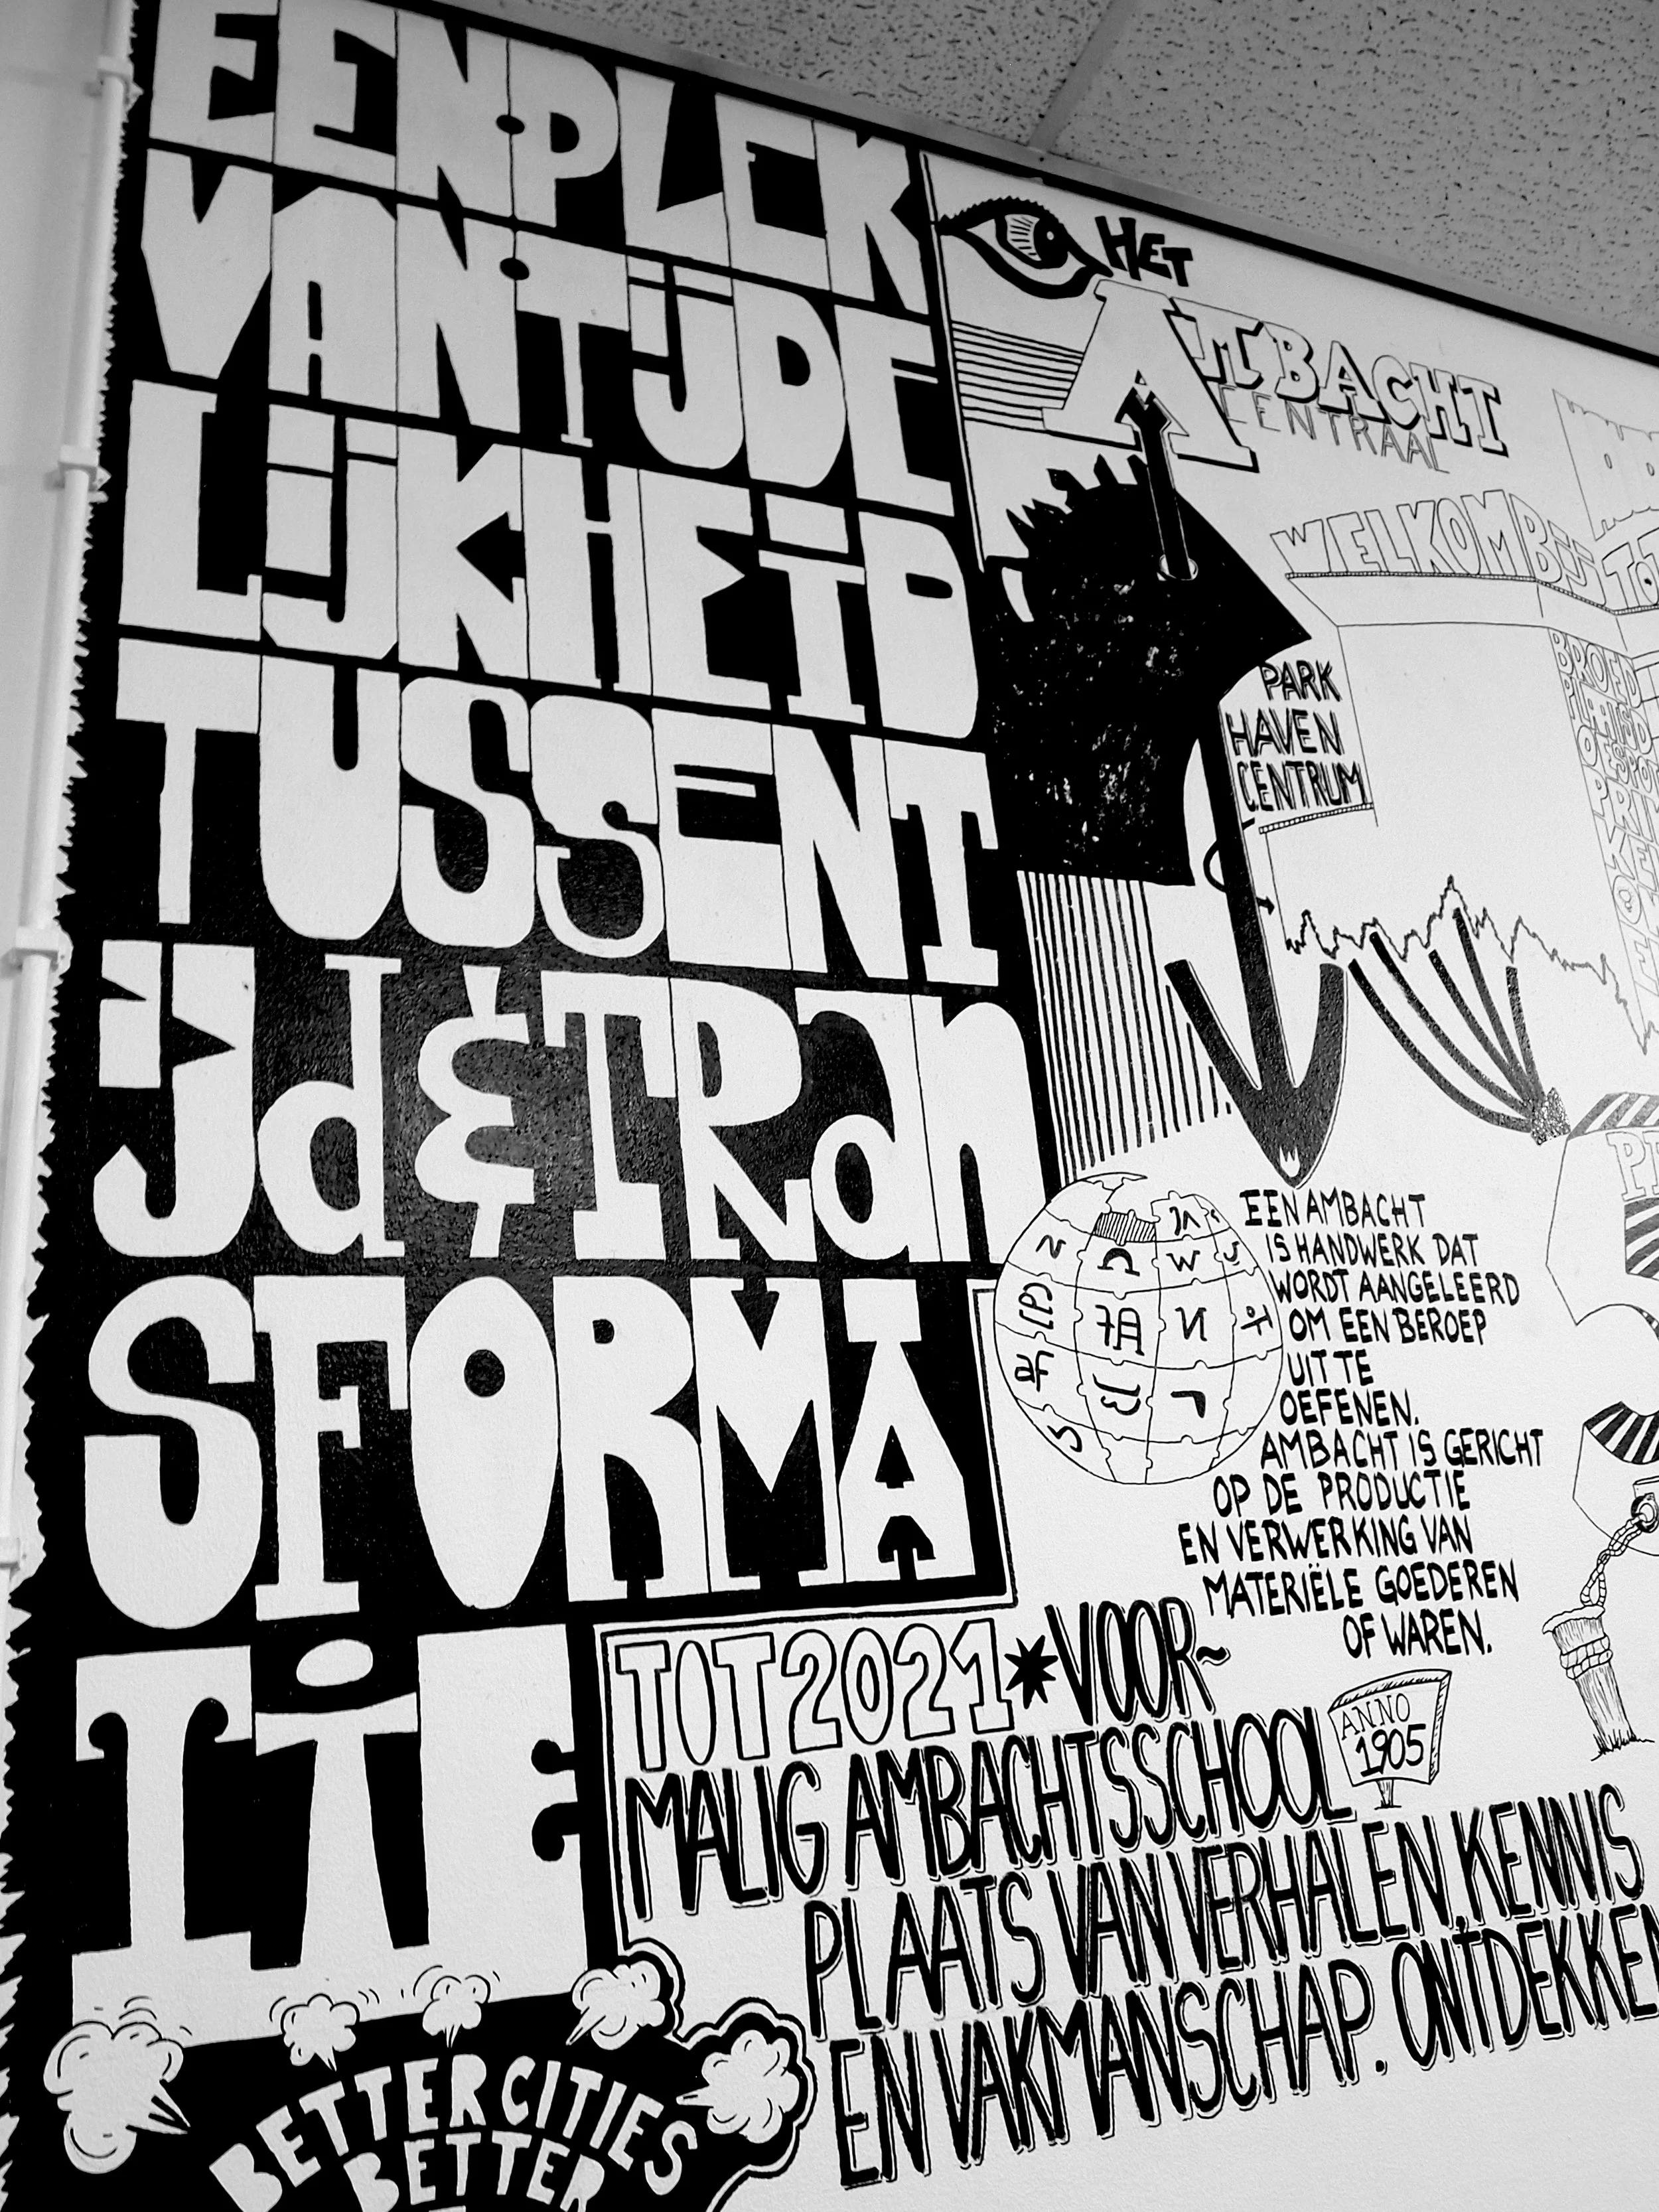 EEN PLEK
VAN TIJDE
LIJKHEID
TUSSEN T
IJd & TRan
SFORMA
TIE
HET
AMBACHT
CENTRAAL
WELKOM BIJ
PARK
HAVEN
CENTRUM
EEN AMBACHT
IS HANDWERK DAT
WORDT AANGELEERD
OM EEN BEROEP
UIT TE
OEFENEN.
AMBACHT IS GERICHT
OP DE PRODUCTIE
EN VERWERKING VAN
MATERIËLE GOEDEREN
OF WAREN.
TOT 2021 * VOOR~
MALIG AMBACHTSSCHOOL
ANNO
1905
PLAATS VAN VERHALEN, KENNIS
EN VAKMANSCHAP. ONTDEKKEN
BETTER CITIES
BETTER